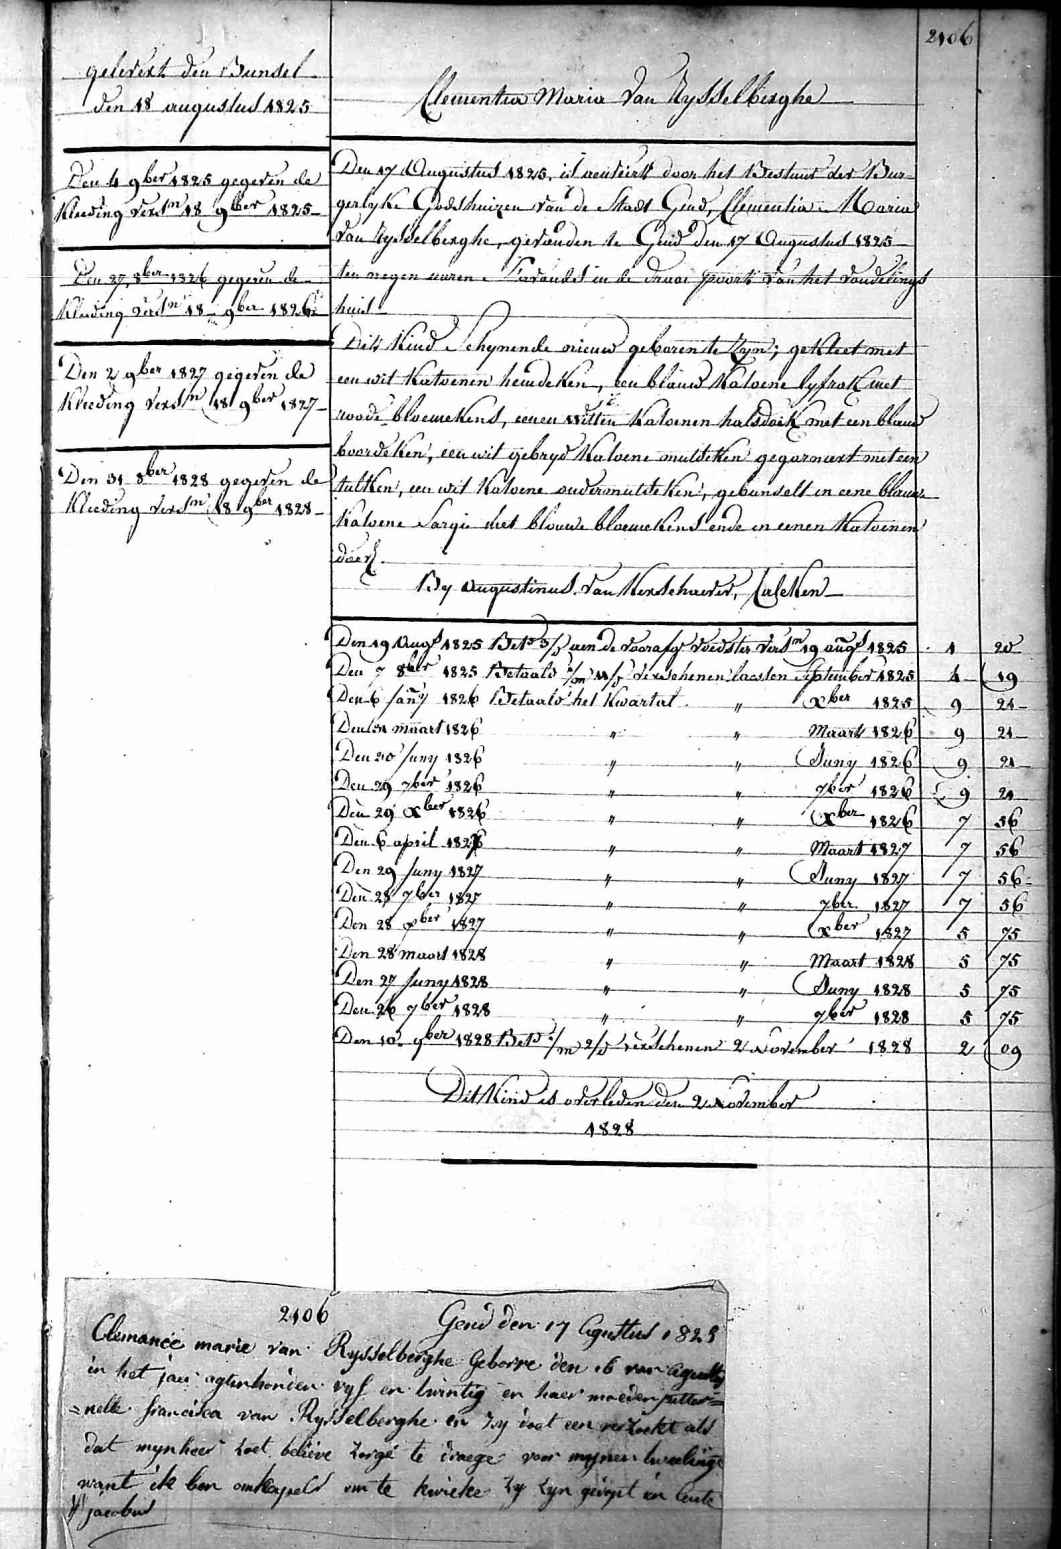 2106
gelevert den Bunsel
den 18 augustus 1825
Den 4 9ber 1825 gegeven de
Kleeding versn 18 9ber 1825
Den 27 8ber 1826 gegeven de
Kleeding versn 18 9ber 1826
Den 2 9ber 1827 gegeven de
Kleeding versn 18 9ber 1827
Den 31 8ber 1828 gegeven de
Kleeding versn 18 9ber 1828
Clementia Maria Van Rysselberghe
Den 17 Augustus 1825, is door het Bestuur der Bur-
gerlyke Godshuizen van de Stadt Gend, Clementia Maria
Van Rysselberghe, gevonden te Gend den 17 Augustus 1825
ten negen uuren s'avonds in de draai poort van het vondelings
huis
Dit Kind Schynende nieuw geboren te Zyn; gekleet met
een wit Katoenen hemdeken, een blauw Katoene lyfrok met
roode bloemekens, eenen witten Katoenen halsdoek met een blauw
boordeken, een wit gebryd Katoene mutseken gegarneert met een
tulken, een wit Katoene ondermutseken, gebunselt in eene blauwe
Katoene Sargie met blouwe bloemekens ende in eenen Katoenen
doek
By Augustinus Van Kerschaever, Calcken
Den 19 Augs 1825 Bets aen de voorafge voedster versn 19 augs 1825 1 20
Den 7 8ber 1825 Betaald verschenen laesten September 1825 4 19
Den 6 Jany 1826 Betaald het Kwartal " xber 1825 9 21
Den 31 maart 1826 " " Maart 1826 9 21
Den 20 Juny 1826 " " Juny 1826 9 21
Den 29 7ber 1826 " " 7ber 1826 9 21
Den 29 xber 1826 " " xber 1826 7 56
Den 6 april 1827 " " Maart 1827 7 56
Den 29 Juny 1827 " " Juny 1827 7 56
Den 28 7ber 1827 " " 7ber 1827 7 56
Den 28 xber 1827 " " xber 1827 5 75
Den 28 maart 1828 " " Maart 1828 5 75
Den 27 Juny 1828 " " Juny 1828 5 75
Den 26 7ber 1828 " " 7ber 1828 5 75
Den 10 9ber 1828 Betd verschenen 2 November 1828 2 09
Dit Kind is overleden den 2 November
1828
2106 Gend den 17 Agustus 1825
Clemancée marie van Rysselberghe Geborre den 16 van Agustus
in het jaer agtienhonden vyf en twintig en haer moeder petter=
=nelle francisca van Rysselberghe en zy doet een verzoekt als
dat mynheer zoet believe zorge te draege voor mynen tweelinge
want ik ben onkapels om te kwieke Zy Zyn gedopt in sente
St jacobus